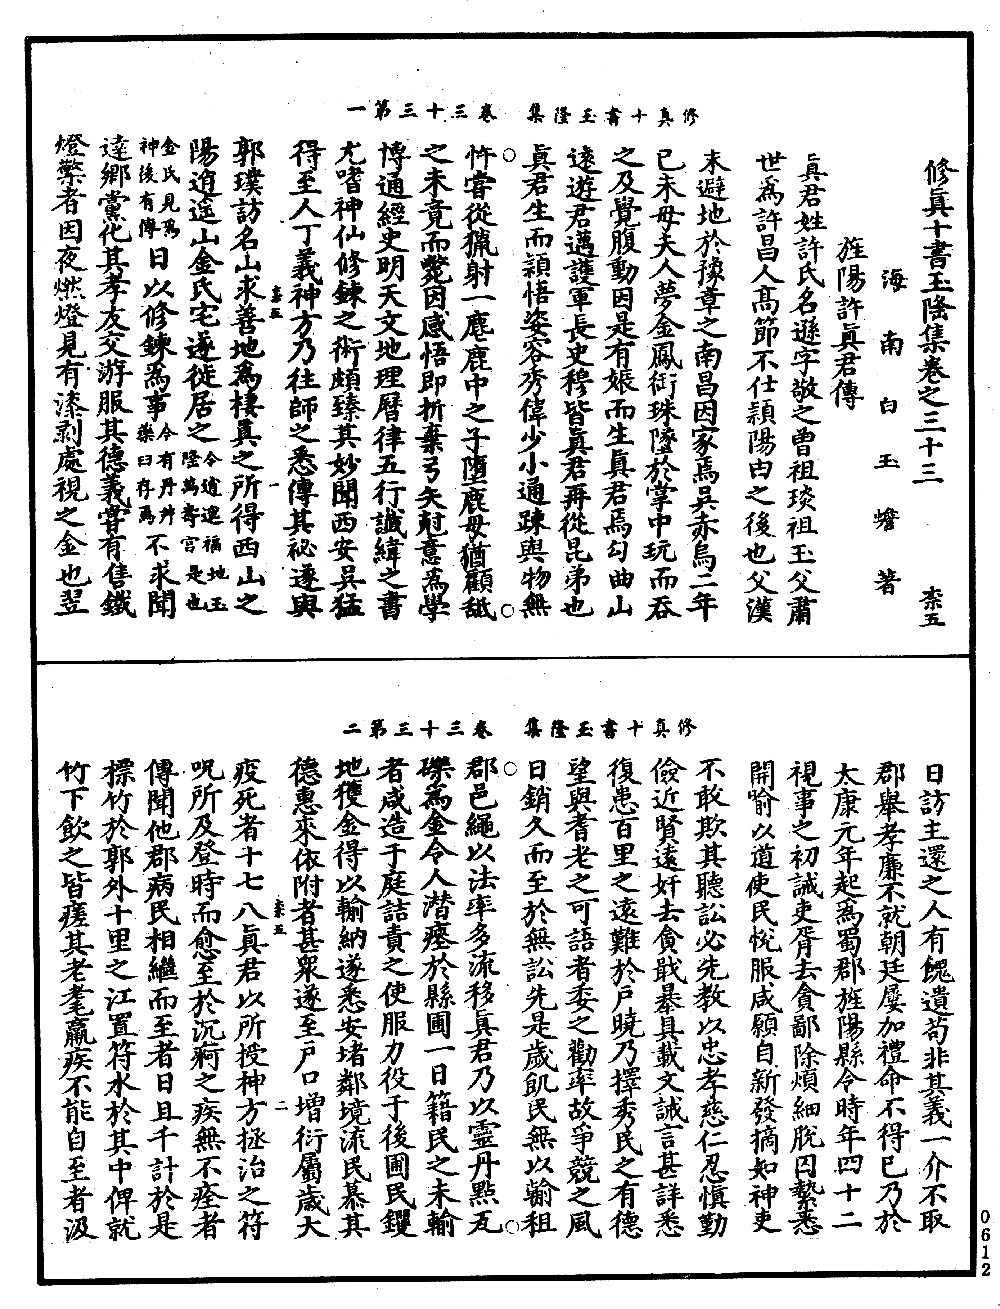 修真十書玉隆集　卷三十三第一
修眞十書玉隆集卷之三十三　柰五
海南白玉蟾著
旌陽許眞君傳
眞君姓許氏名遜字敬之曾祖琰祖玉父肅
世爲許昌人高節不仕潁陽由之後也父漢
末避地於豫章之南昌因家焉吳赤烏二年
己未母夫人夢金鳳銜珠墜於掌中玩而吞
之及覺腹動因是有娠而生眞君焉勾曲山
遠遊君邁護軍長史穆皆眞君再從昆弟也
眞君生而穎悟姿容秀偉少小通疎與物無
忤嘗從獵射一麀鹿中之子墮鹿母猶顧舐
之未竟而斃因感悟即折棄弓矢尅意爲學
博通經史明天文地理曆律五行讖緯之書
尤嗜神仙修鍊之術頗臻其妙聞西安吳猛
得至人丁義神方乃往師之悉傳其祕遂與
柰五　一
郭璞訪名山求善地爲棲眞之所得西山之
陽逍遙山金氏宅遂徙居之今逍遙福地玉隆萬壽宮是也
金氏見爲神後有傳日以修鍊爲事今有丹井藥臼存焉不求聞
達鄉黨化其孝友交游服其德義嘗有售鐵
燈檠者因夜燃燈見有漆剥處視之金也翌
修真十書玉隆集　卷三十三第二
日訪主還之人有餽遺苟非其義一介不取
郡舉孝廉不就朝廷屢加禮命不得已乃於
太康元年起爲蜀郡旌陽縣令時年四十二
視事之初誡吏胥去貪鄙除煩細脫囚縶悉
開喻以道使民悅服咸願自新發摘如神吏
不敢欺其聽訟必先教以忠孝慈仁忍慎勤
儉近賢遠奸去貪戢暴具載文誡言甚詳悉
復患百里之遠難於戶曉乃擇秀民之有德
望與耆老之可語者委之勸率故爭競之風
日銷久而至於無訟先是歲飢民無以輸租
郡邑繩以法率多流移眞君乃以靈丹點瓦
礫爲金令人潛瘞於縣圃一日籍民之未輸
者咸造于庭詰責之使服力役于後圃民钁
地穫金得以輸納遂悉安堵鄰境流民慕其
德惠來依附者甚衆遂至戶口增衍屬歲大
柰五　二
疫死者十七八眞君以所授神方拯治之符
呪所及登時而愈至於沉痾之疾無不痊者
傳聞他郡病民相繼而至者日且千計於是
標竹於郭外十里之江置符水於其中俾就
竹下飲之皆瘥其老耄羸疾不能自至者汲
0612